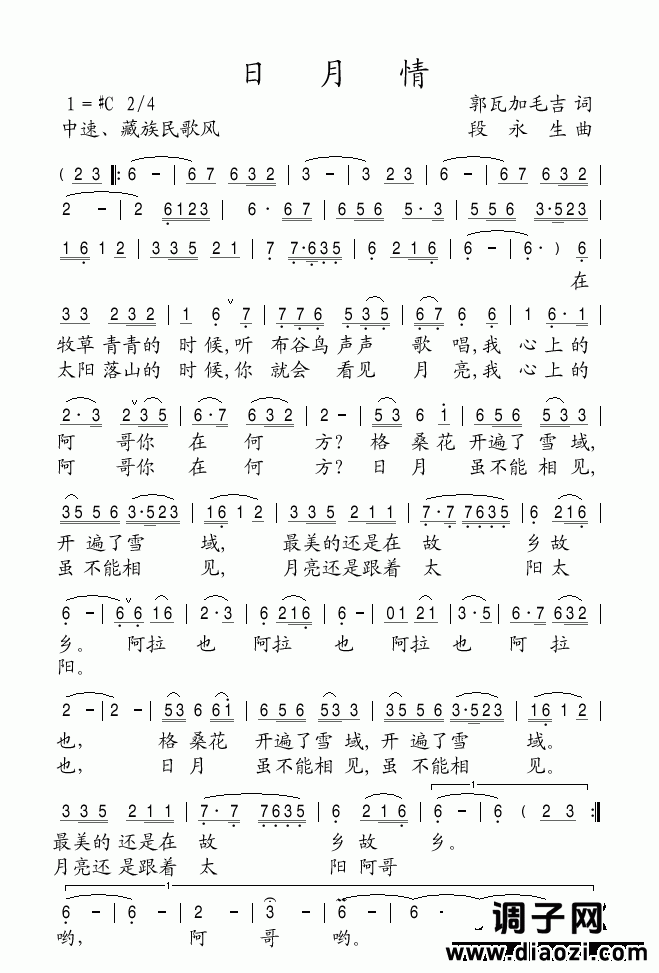 日 月 情
1 = #C 2/4
郭瓦加毛吉 词
中速、藏族民歌风
段 永 生 曲
( 2 3 ‖: 6 - | 6 7 6 3 2 | 3 - | 3 2 3 | 6 - | 6 7 6 3 2 |
2 - | 2 6 1 2 3 | 6 · 6 7 | 6 5 6 5 · 3 | 5 5 6 3 · 5 2 3 |
1 6 1 2 | 3 3 5 2 1 | 7 7 · 6 3 5 | 6 2 1 6 | 6 - | 6 · ) 6 |
在
3 3 2 3 2 | 1 6 ∨ 7 | 7 7 6 5 3 5 | 6 7 6 6 | 1 2 6 · 1 |
牧草 青青的 时 候,听 布谷鸟 声声 歌 唱,我 心 上的
太阳 落山的 时 候,你 就会 看见 月 亮,我 心 上的
2 · 3 2 ∨ 3 5 | 6 · 7 6 3 2 | 2 - | 5 3 6 i | 6 5 6 5 3 5 |
阿 哥你 在 何 方? 格 桑花 开遍了 雪 域,
阿 哥你 在 何 方? 日 月 虽不能 相 见,
3 5 5 6 3 · 5 2 3 | 1 6 1 2 | 3 3 5 2 1 1 | 7 · 7 7 6 3 5 | 6 2 1 6 |
开 遍了 雪 域, 最美的 还是在 故 乡 故
虽 不能 相 见, 月亮还 是跟着 太 阳 太
6 - | 6 ∨ 6 1 6 | 2 · 3 | 6 2 1 6 | 6 - | 0 1 2 1 | 3 · 5 | 6 · 7 6 3 2 |
乡。 阿拉 也 阿拉 也 阿拉 也 阿拉
阳。
2 - | 2 - | 5 3 6 6 i | 6 5 6 5 3 5 | 3 5 5 6 3 · 5 2 3 | 1 6 1 2 |
也, 格 桑花 开遍了 雪 域, 开 遍了 雪 域。
也, 日 月 虽不能 相 见, 虽 不能 相 见。
3 3 5 2 1 1 | 7 · 7 7 6 3 5 | 6 2 1 6 | 6 - | 6 ( 2 3 :‖
最美的 还是在 故 乡 故 乡。
月亮还 是跟着 太 阳 阿哥
6 - | 6 - | 2 - | 3 - | 6 - | 6 -
哟, 阿 哥 哟。
调子网
www.diaozi.com